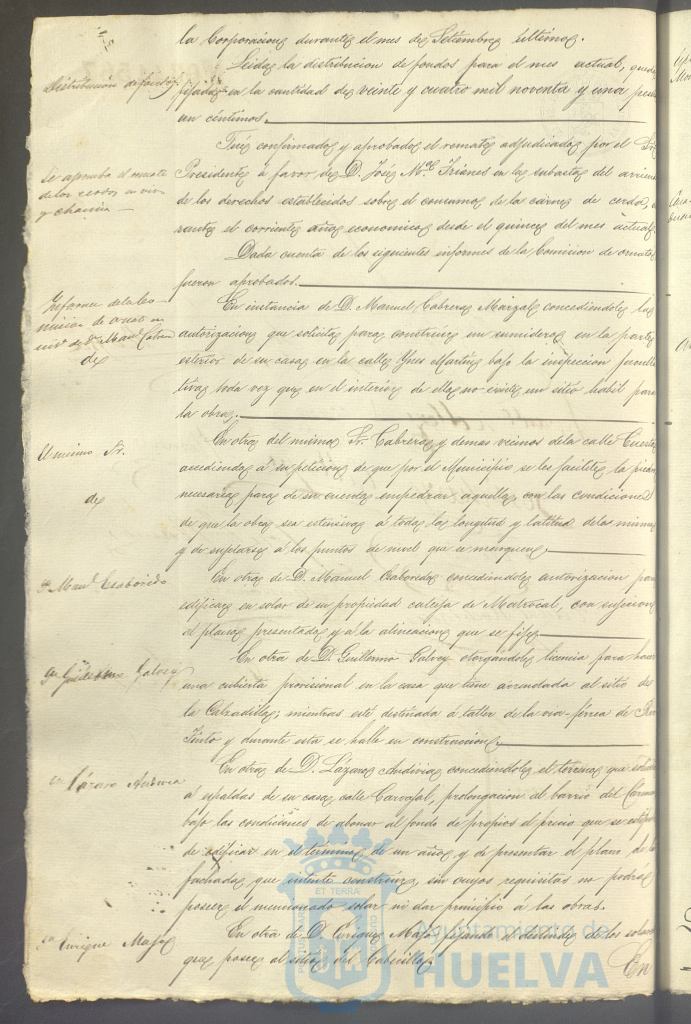 la Corporacion durante el mes de Setiembre último.
Distribucion de fondos
Leida la distribucion de fondos para el mes actual, quedó
fijada en la cantidad de veinte y cuatro mil noventa y una pesetas
un céntimos.
Se aprueba el remate
de los cerdos en vivo
y chacina
Fué confirmado y aprobado el remate adjudicado por el Sr.
Presidente á favor de D. José Mª Trianes en la subasta del arriendo
de los derechos establecidos sobre el consumo de la carne de cerdo,
rante el corriente año economico desde el quince del mes actual.
Dada cuenta de los siguientes informes de la Comision de ornato
fueron aprobados.
Informe de la Co-
mision de ornato en
inst. de D. Manl. Cabrera
En instancia de D. Manuel Cabrera Marzal concediendole la
autorizacion que solicita para construir un sumidero en la parte
esterior de su casa en la calle Ynes Martin bajo la inspeccion faculta
tiva toda vez que en el interior de ella no existe un sitio habil para
la obra.
El mismo Sr.
En otra del mismo Sr. Cabrera y demas vecinos de la calle Cuesta
accediendo á su peticion de que por el Municipio se les facilite la piedra
necesaria para de su cuenta empedrar aquella con las condiciones
de que la obra sea estensiva á toda la longitud y latitud de la misma
y de sujetarse á los puntos de nivel que se marquen.
D. Manl. Escoboredo
En otra de D. Manuel concediendole autorizacion para
edificar en solar de su propiedad calleja de Madrocal, con sujecion
al plano presentado y á la alineacion que se fije.
D. Guillermo Galvey
En otra de D. Guillermo Galvey otorgandole licencia para hacer
una cubierta provisional en la casa que tiene arrendada al sitio de
la Calzadilla; mientras esté destinada á taller de la via-férea de Rio
Tinto y durante esta se halle en construccion.
D. Lázaro Andivia
En otra de D. Lázaro Andivia concediendole el terreno que solicita
á espaldas de su casa calle Carvajal, prolongacion al barrio del Carmen
bajo las condiciones de abonar al fondo de propios el precio que se estipule
de edificar en el termino de un año y de presentar el plano de la
fachada que intente construir sin cuyos requisitos no podrá
poseer el mencionado solar ni dar principio á las obras.
D. Enrique Mafe
En otra de D. Enrique Mafe fijando el deslinde de los solares
que posee al sitio del Cabecillo.
En
Ayuntamiento de
HUELVA